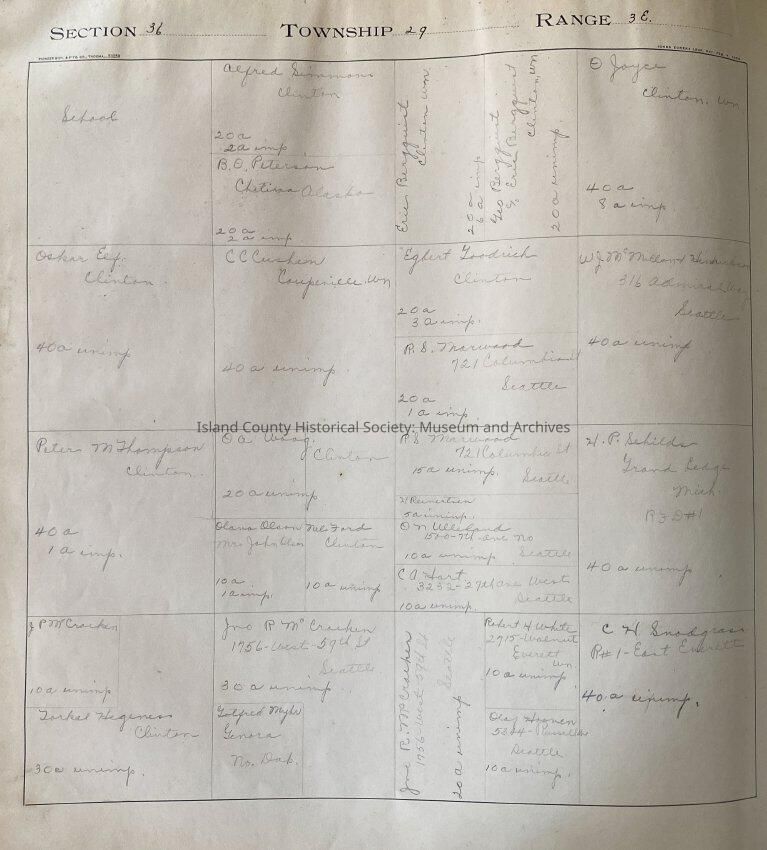 SECTION 36 TOWNSHIP 29 RANGE 3 E.
School
Alfred Simmons
Clinton
20 a
2 a imp
B.O. Peterson
Chitina Alaska
20 a
2 a imp
Eric Bergquist
Clinton Wn.
20 a
6 a imp
Geo Bergquist
% Eric Bergquist
Clinton, Wn
20 a unimp.
O Joyce
Clinton, Wn
40 a
8 a imp
Oskar Elf.
Clinton.
40 a unimp
C C Cushen
Coupeville, Wn
40 a unimp.
Egbert Goodrich
Clinton
20 a
3 a imp.
R. S. Marwood
721 Columbia st
Seattle
20 a
1 a imp
W J McMilland
316 Admiral Way
Seattle
40 a unimp
Island County Historical Society: Museum and Archives
Peter M Thompson
Clinton.
40 a
1 a imp.
O a
Clinton
20 a unimp
Olava Olson
Mrs John Olson
10 a
1 a imp.
Nels Ford
Clinton
10 a unimp
R S Marwood
721 Columbia St
15 a unimp. Seattle
H Reinertsen
5 a unimp.
O N Ulleland
1500-7th-ave No
10 a unimp Seattle
C A Hart
3232-27th ave West
Seattle
10 a unimp.
H. P. Schilds
Grand Ledge
Mich
R F D #1
40 a unimp
J P McCracken
10 a unimp
Torkel Hegeness
Clinton
30 a unimp.
Jno R McCracken
1756-West-59th St
Seattle
30 a unimp
Gotfred Myhr
Genora
No. Dak.
Jno R. McCracken
1756 West 59th St
Seattle
20 a unimp
Robert H White
2915-Walnut
Everett
Wn
10 a unimp
Olaf
Seattle
10 a unimp.
C H Snodgrass
R#1-East Everett
40 a unimp.